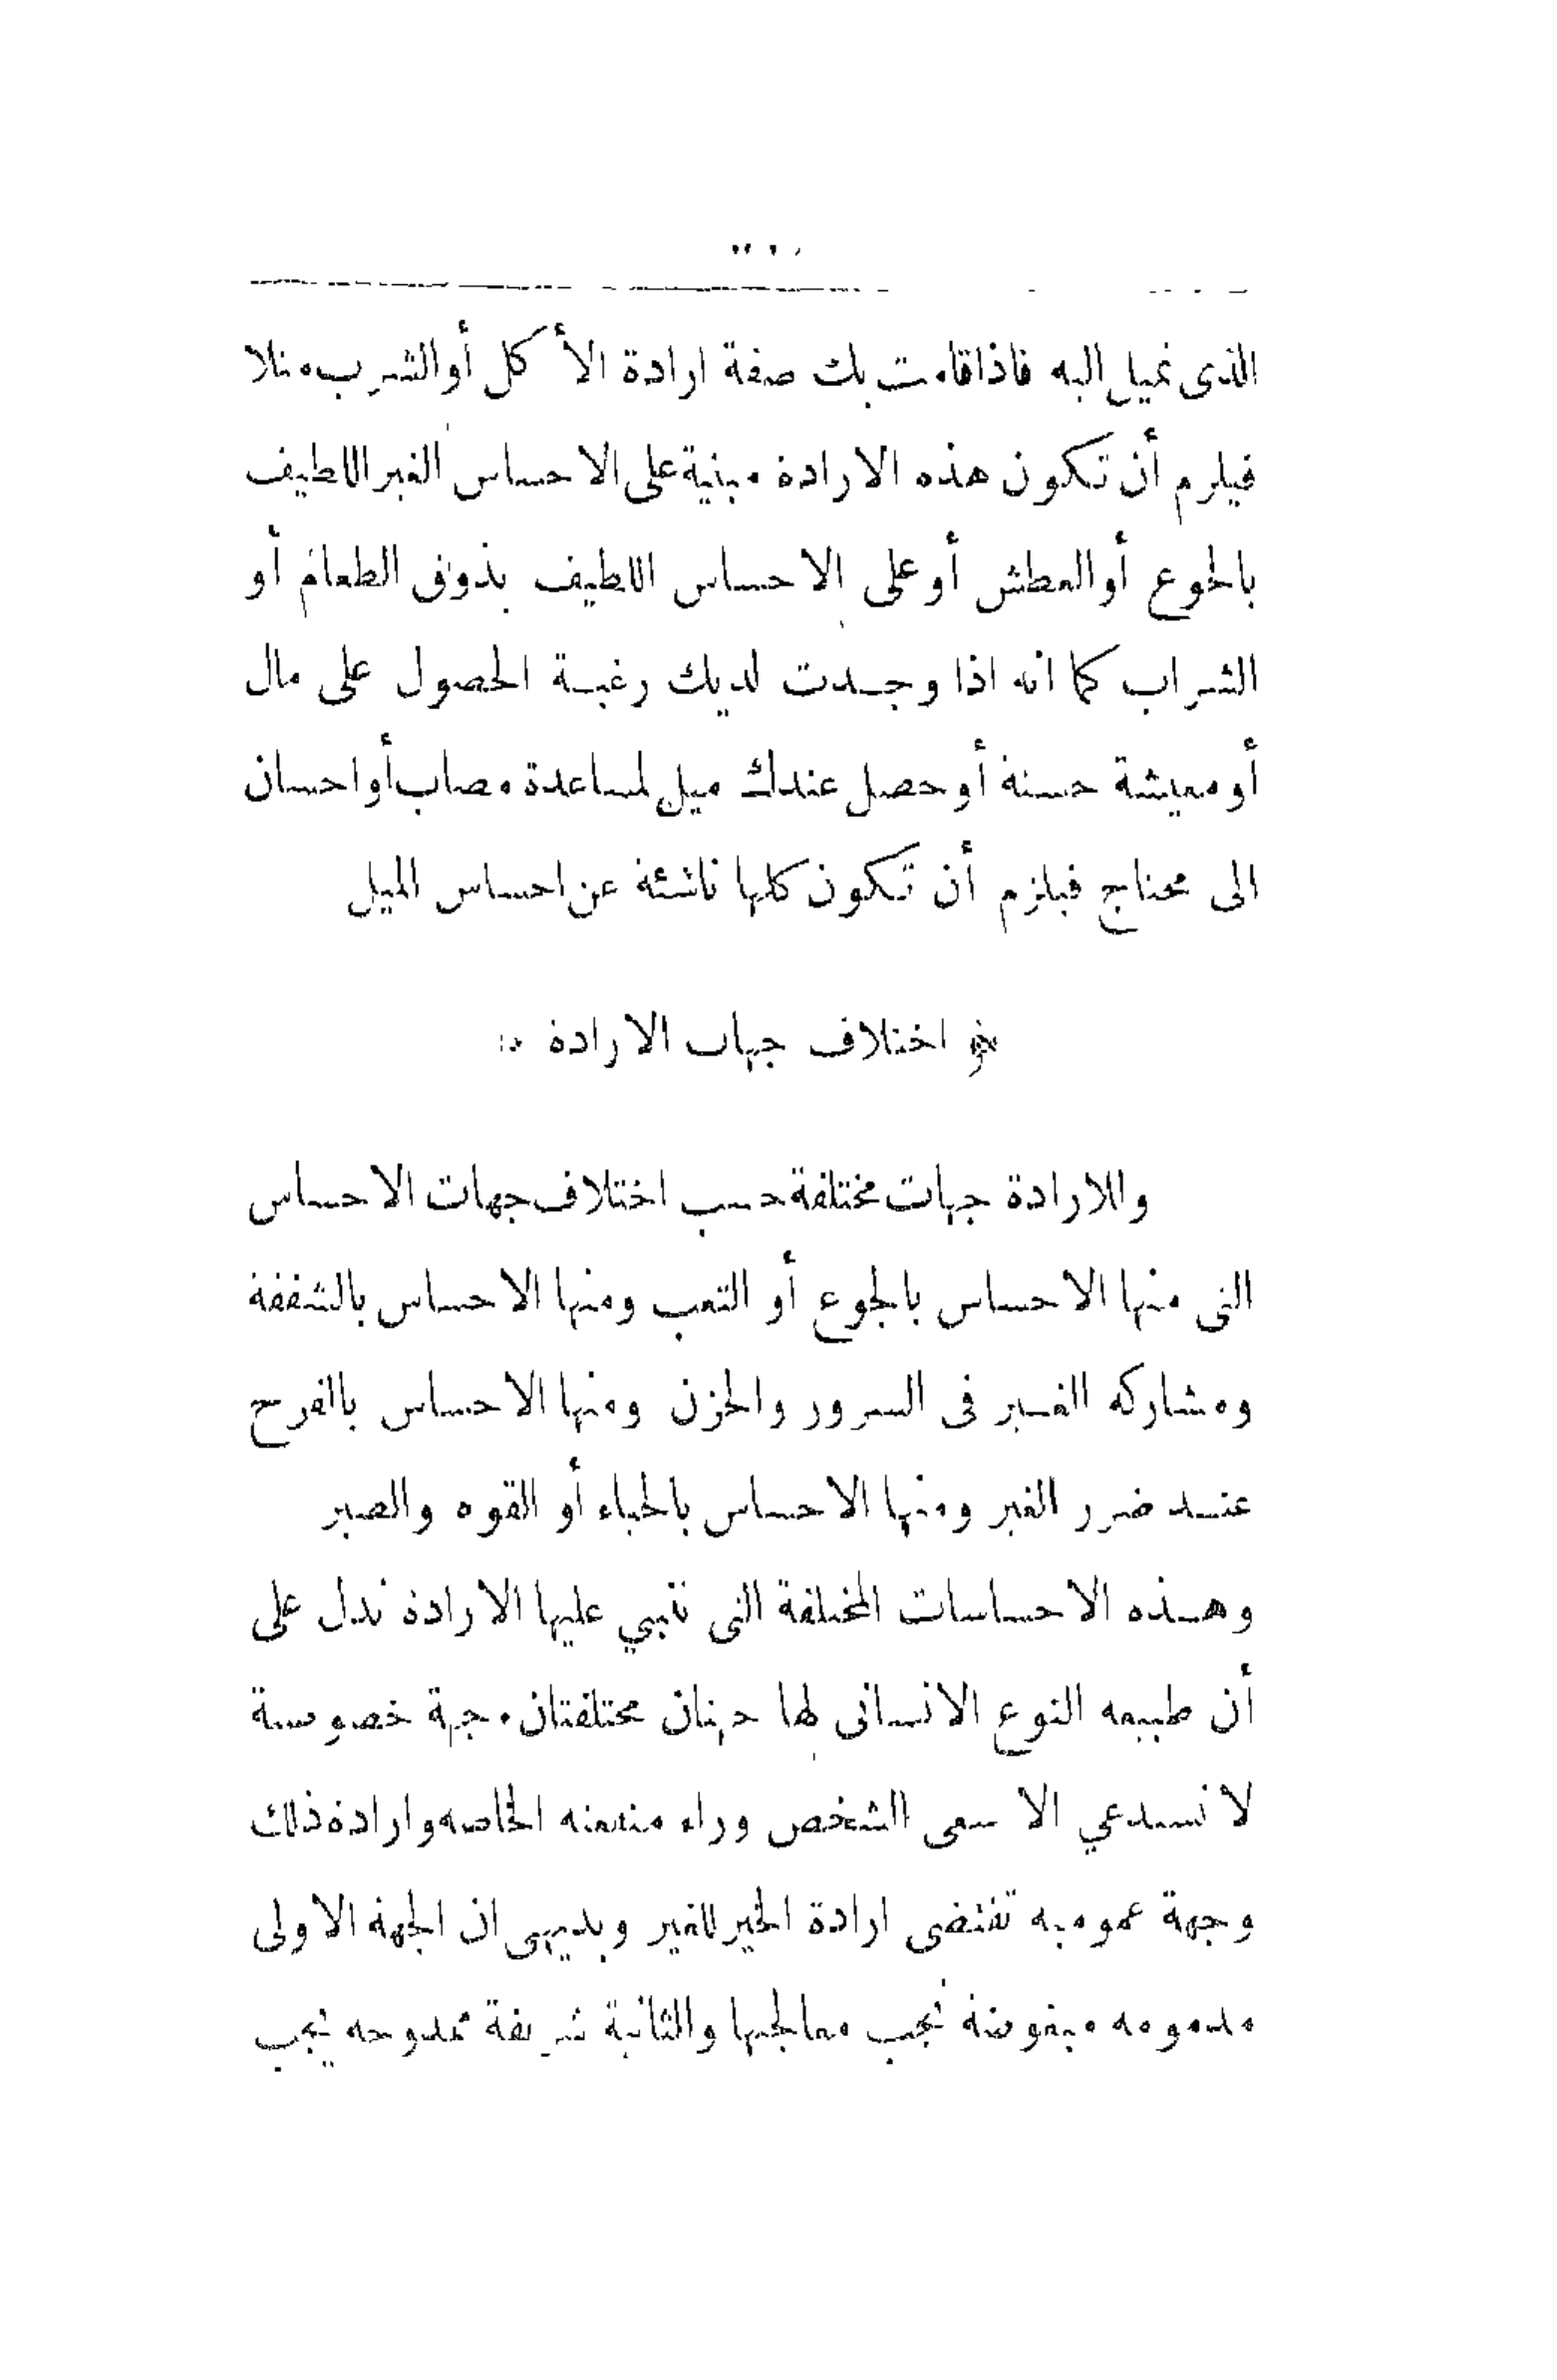 الذى نميل اليه فاذا قامت بك صفة ارادة الأكل أو الشرب مثلا
فيلزم أن تكون هذه الارادة مبنية على الاحساس الغير اللطيف
بالجوع أو العطش أو على الاحساس اللطيف بذوق الطعام أو
الشراب كما انه اذا وجدت لديك رغبة الحصول على مال
أو معيشة حسنة أو حصل عندك ميل لمساعدة مصاب أو احسان
الى محتاج فيلزم أن تكون كلها ناشئة عن احساس الميل
﴿ اختلاف جهات الارادة ﴾
وللارادة جهات مختلفة حسب اختلاف جهات الاحساس
التى منها الاحساس بالجوع أو التعب ومنها الاحساس بالشفقة
ومشاركه الغير فى السرور والحزن ومنها الاحساس بالفرح
عند ضرر الغير ومنها الاحساس بالحياء أو القوه والصبر
وهذه الاحساسات المختلفة التى تنبني عليها الارادة تدل على
أن طبيعه النوع الانسانى لها جهتان مختلفتان. جهة خصوصية
لا تستدعي الا سعى الشخص وراء منفعته الخاصه وارادة ذلك
وجهة عموميه تقتضى ارادة الخير للغير وبديهى ان الجهة الاولى
مذمومه مبغوضة تجب معالجتها والثانية شريفة ممدوحه يجب